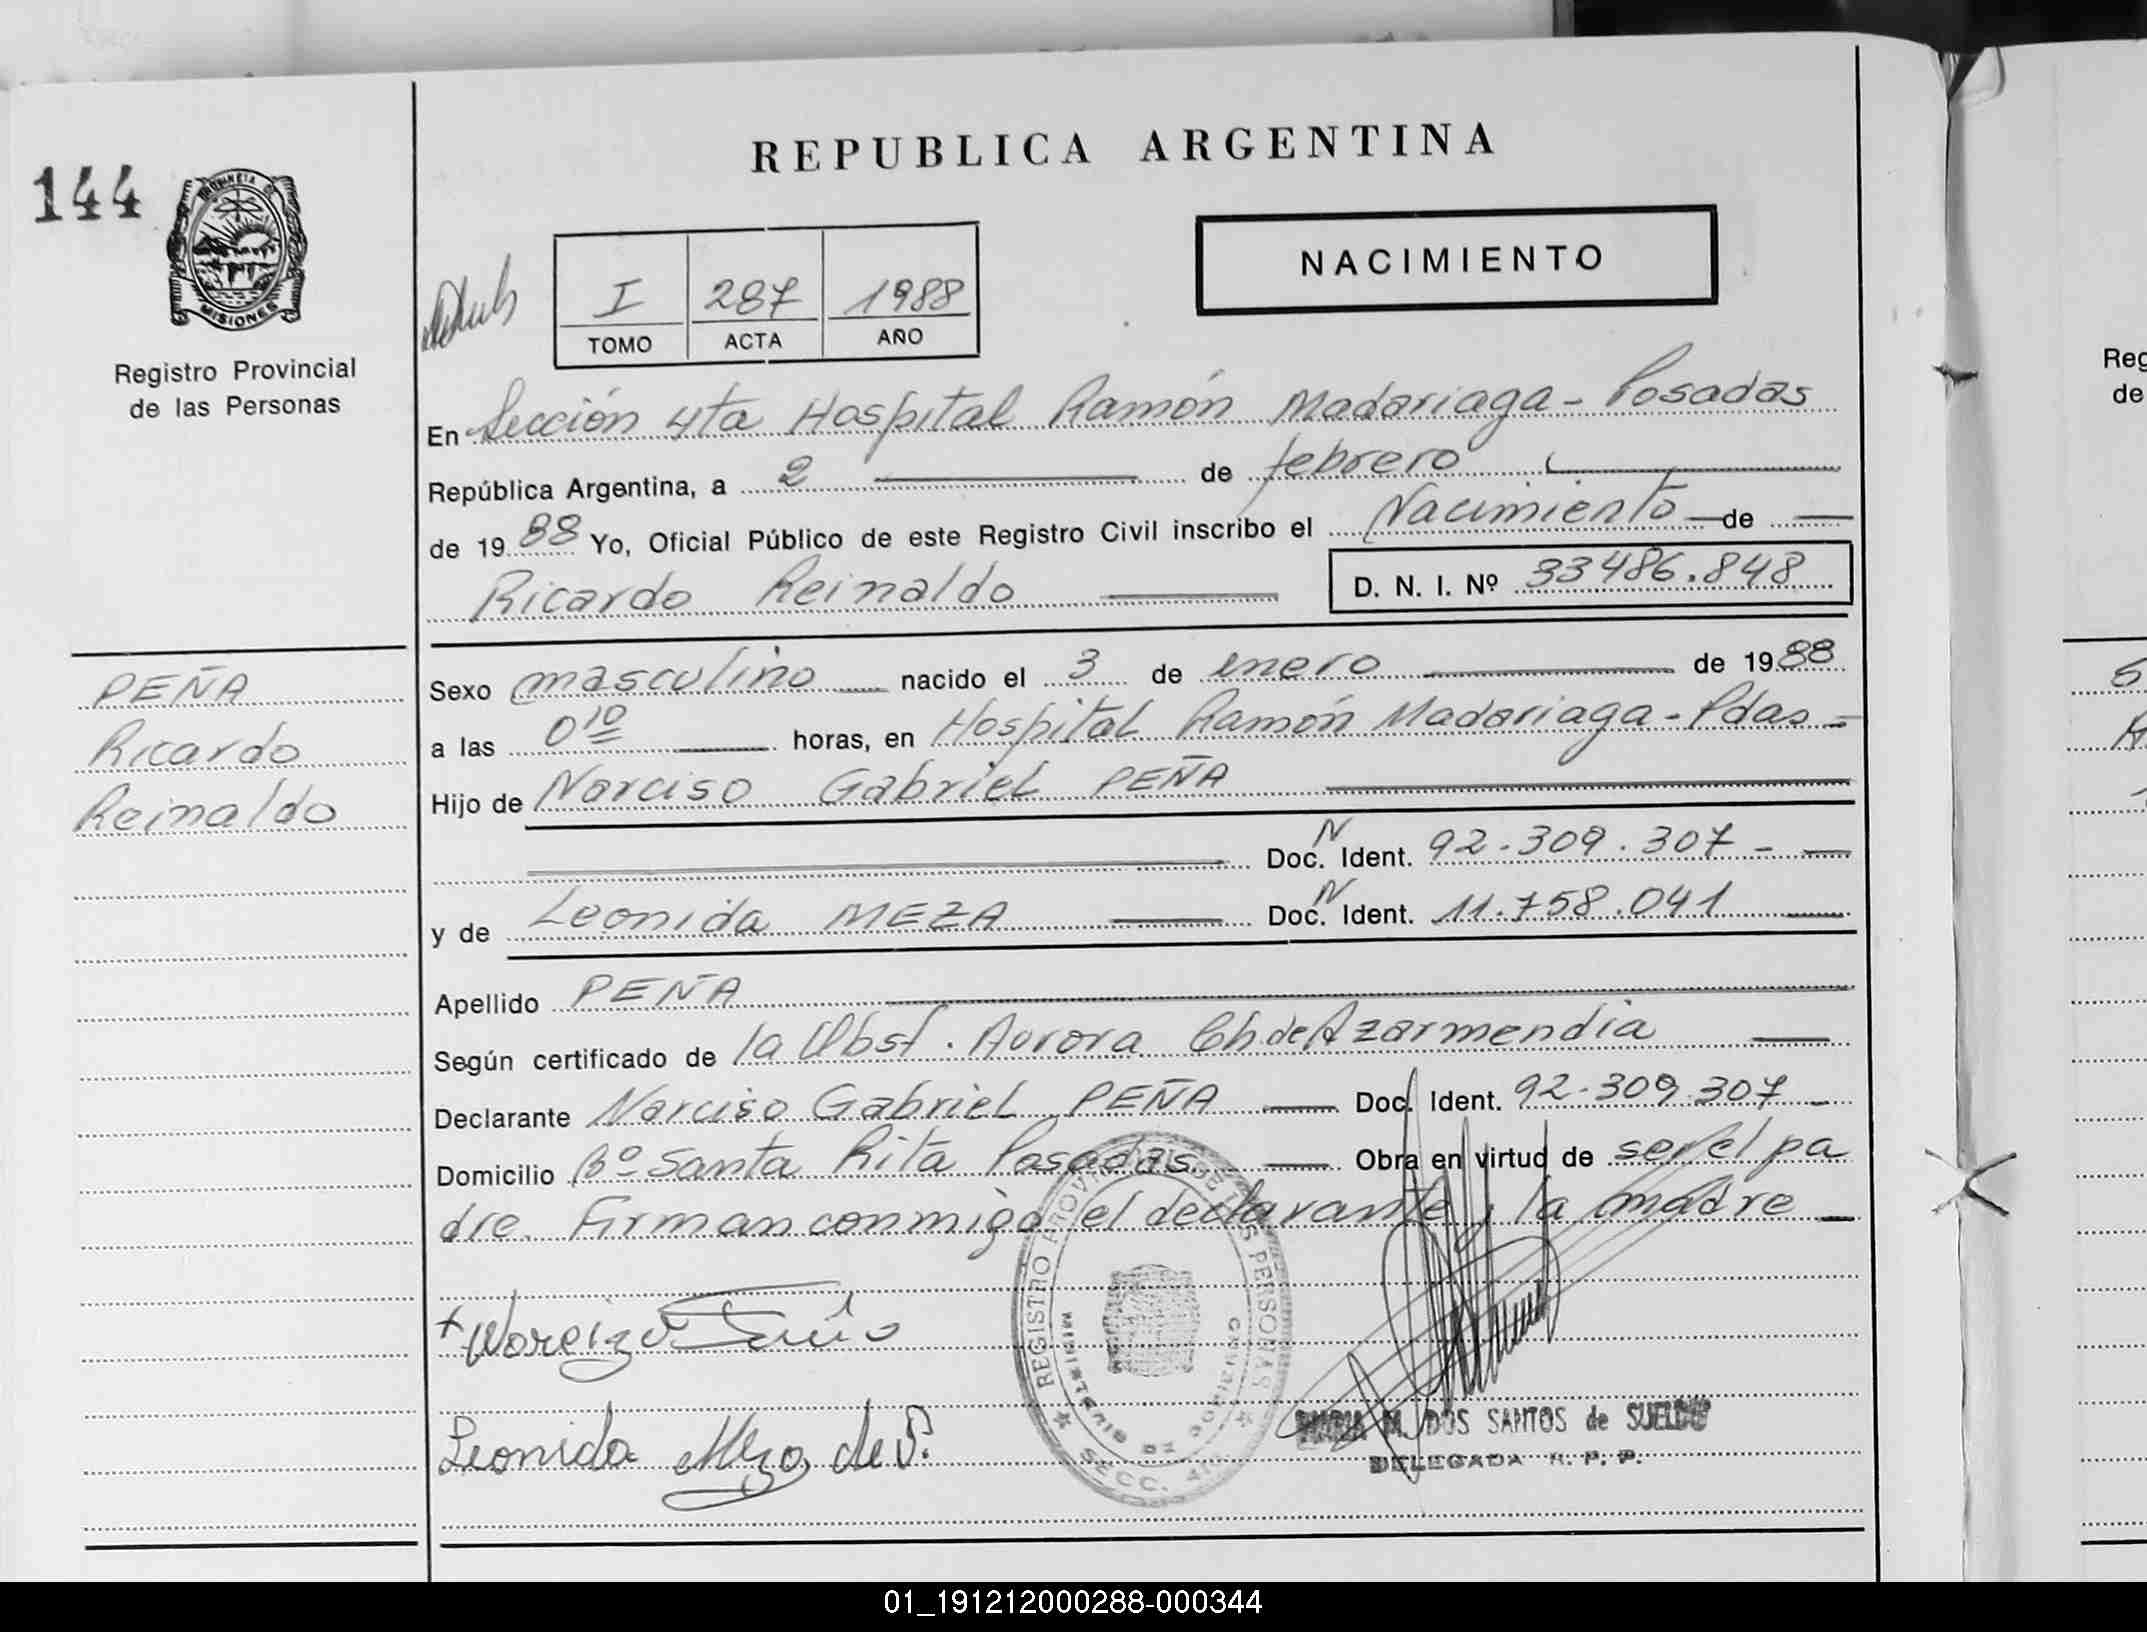 REPUBLICA ARGENTINA
144
PROVINCIA DE
MISIONES
Registro Provincial
de las Personas
NACIMIENTO
I 287 1988
TOMO ACTA AÑO
En Sección 4ta Hospital Ramón Madariaga - Posadas
República Argentina, a 2 de febrero
de 1988 Yo, Oficial Público de este Registro Civil inscribo el Nacimiento de
Ricardo Reinaldo
D. N. I. Nº 33486.848
PEÑA
Ricardo
Reinaldo
Sexo masculino nacido el 3 de enero de 1988
a las 0 10 horas, en Hospital Ramón Madariaga - Pdas -
Hijo de Narciso Gabriel PEÑA
N
Doc. Ident. 92.309.307 -
N
y de Leonida MEZA Doc. Ident. 11.758.041
Apellido PEÑA
Según certificado de la Obst. Aurora Ch de Azarmendia
Declarante Narciso Gabriel PEÑA Doc. Ident. 92.309.307
Domicilio Bº Santa Rita Posadas. Obra en virtud de ser el pa
dre. Firman conmigo el declarante y la madre
Leonida Meza de P.
REGISTRO PROVINCIAL DE LAS PERSONAS
MINISTERIO DE GOBIERNO
SECC. 4ta.
MARIA M. DOS SANTOS de SUELDO
DELEGADA R. P. P.
Reg
de
01_191212000288-000344